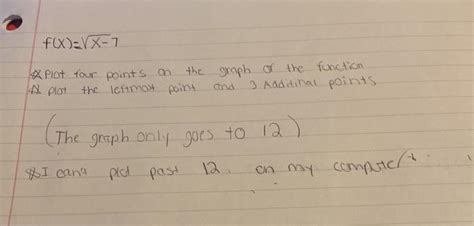 f(x)=√x-7
* Plot four points on the graph of the function
* plot the leftmost point and 3 Additinal points
(The graph only goes to 12)
* I can't plot past 12. on my computer